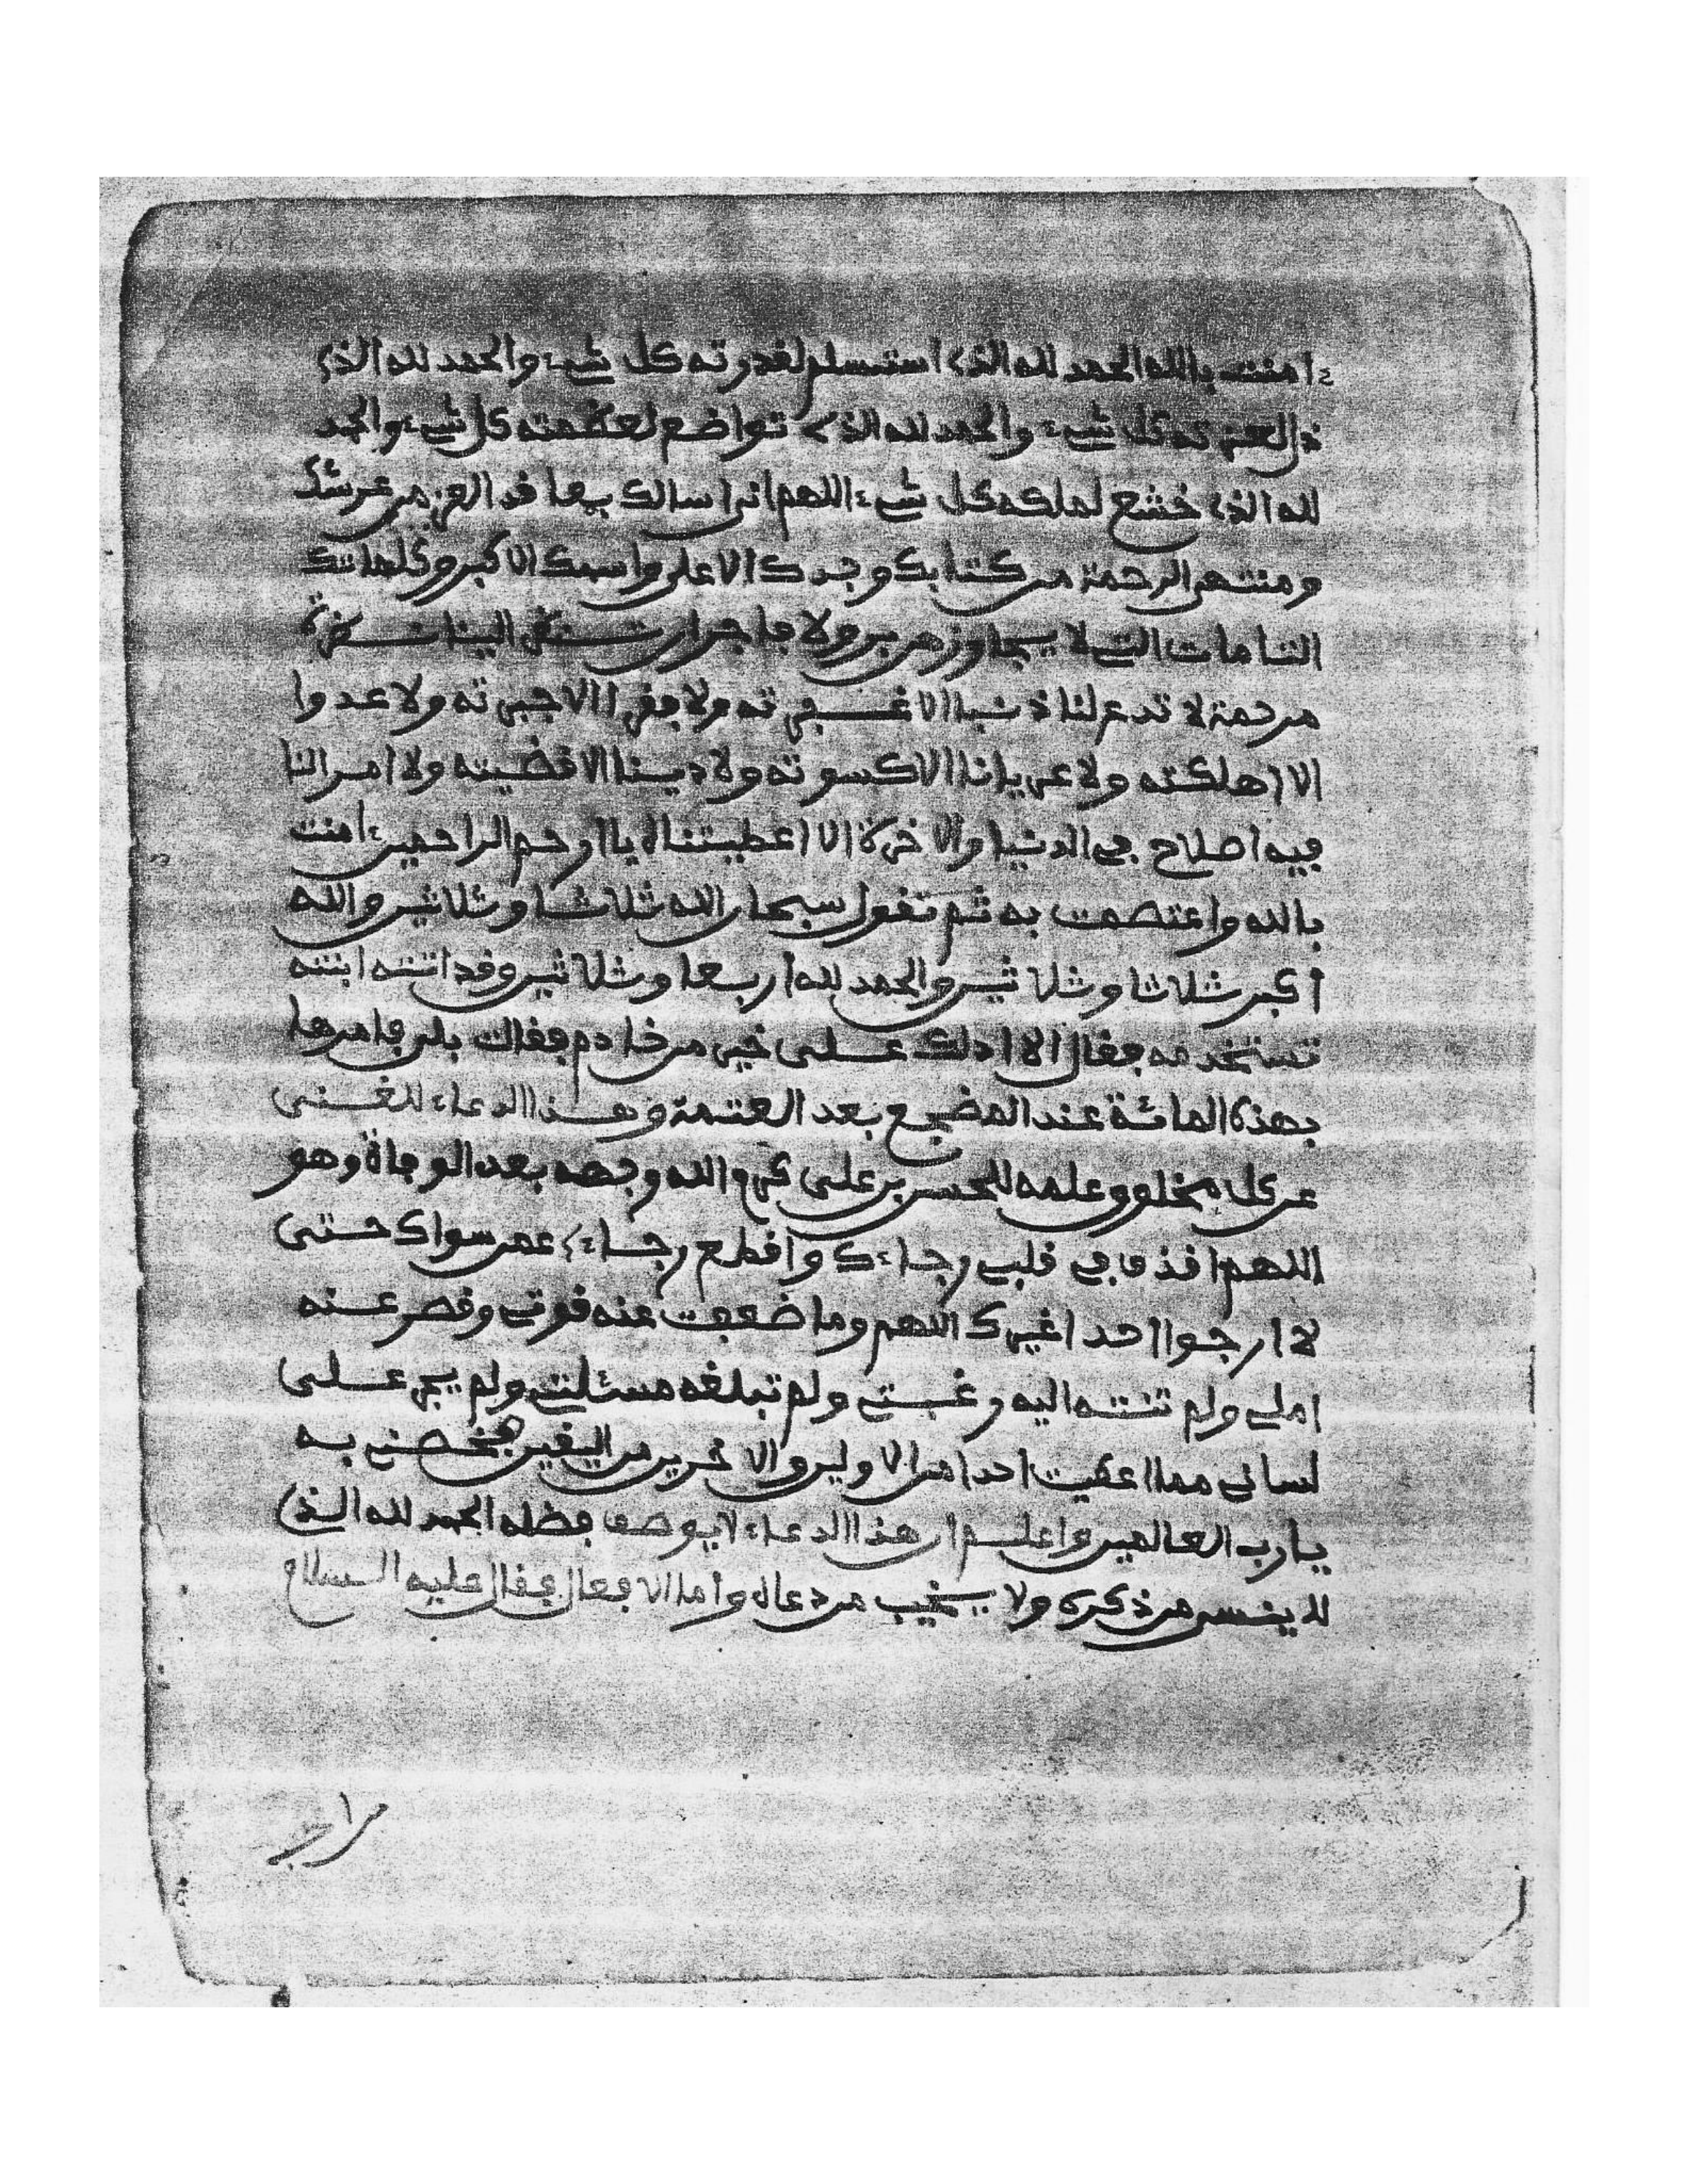 ءامنت بالله الحمد لله الذي استسلم لقدرته كل شيء والحمد لله الذي
ذل لعزته كل شيء والحمد لله الذي تواضع لعظمته كل شيء والحمد
لله الذي خشع لملكه كل شيء اللهم اني اسالك بمعاقد العز من عرشك
ومنتهى الرحمة من كتابك وجدك الاعلى واسمك الاكبر وكلماتك
التامات التي لا يجاوزهن بر ولا فاجر ان تنظر الينا نظرة
مرحمة لا تدع لنا ذنبا الا غفرته ولا فقرا الا جبرته ولا عدوا
الا اهلكته ولا عريانا الا كسوته ولا دينا الا قضيته ولا امرا لنا
فيه اصلاح في الدنيا والاخرة الا اعطيتناه يا ارحم الراحمين ءامنت
بالله واعتصمت به ثم تقول سبحان الله ثلاثا وثلاثين والله
اكبر ثلاثا وثلاثين والحمد لله اربعا وثلاثين وقد اتته ابنته
تستخدمه فقال الا ادلك على خير من خادم فقالت بلى فامرها
بهذه المائة عند المضجع بعد العتمة وهذا الدعاء للغنى
عن كل مخلوق علمه للحسن بن علي كرم الله وجهه بعد الوفاة وهو
اللهم اقذف في قلبي رجاءك واقطع رجاءي عمن سواك حتى
لا ارجوا احدا غيرك اللهم وما ضعفت عنه قوتي وقصر عنه
املي ولم تنته اليه رغبتي ولم تبلغه مسئلتي ولم يجر على
لساني مما اعطيت احدا من الاولين والاخرين من اليقين فخصني به
يا رب العالمين واعلم ان هذا الدعاء لا يوصف فظله الحمد لله الذي
لا ينسى من ذكره ولا يخيب من دعاه واما الافعال فقال عليه السلام